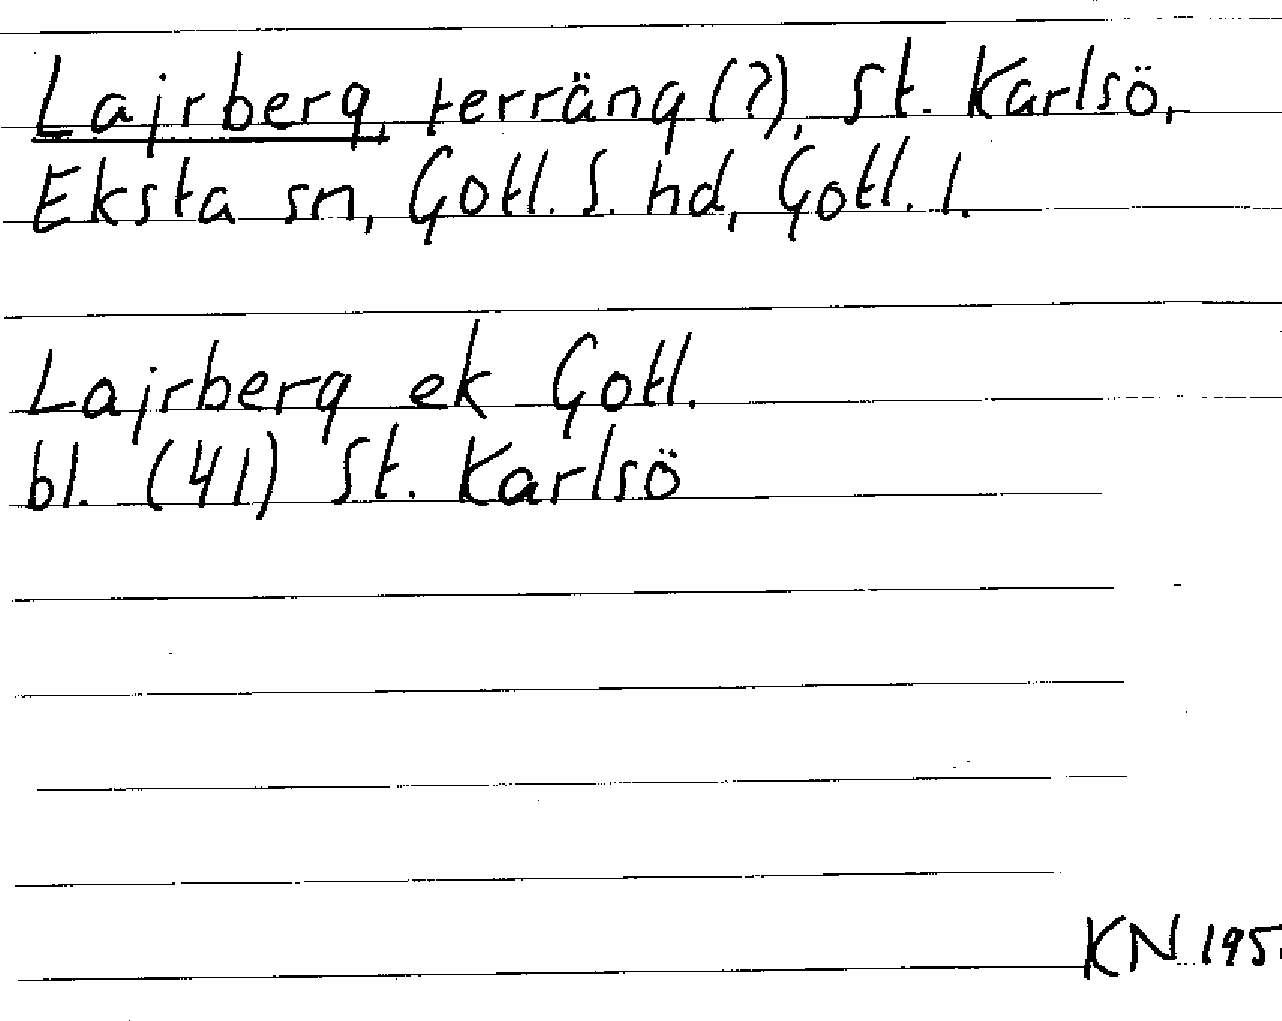 Lajrberg, terräng (?), St. Karlsö,
Eksta sn, Gotl. S. hd, Gotl. l.
Lajrberg ek Gotl.
bl. (41) St. Karlsö
KN 195